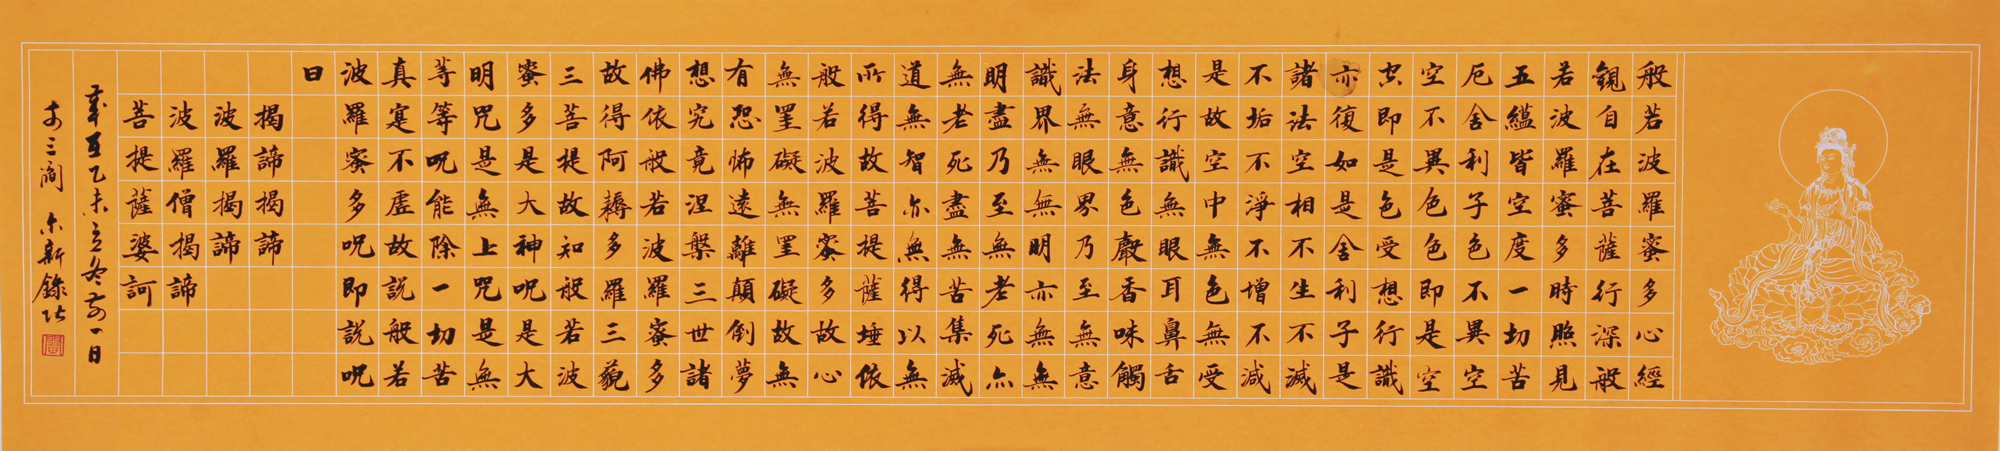 般若波羅蜜多心經
觀自在菩薩行深般
若波羅蜜多時照見
五蘊皆空度一切苦
厄舍利子色不異空
空不異色色即是空
空即是色受想行識
亦復如是舍利子是
諸法空相不生不滅
不垢不淨不增不減
是故空中無色無受
想行識無眼耳鼻舌
身意無色聲香味觸
法無眼界乃至無意
識界無無明亦無無
明盡乃至無老死亦
無老死盡無苦集滅
道無智亦無得以無
所得故菩提薩埵依
般若波羅蜜多故心
無罣礙無罣礙故無
有恐怖遠離顛倒夢
想究竟涅槃三世諸
佛依般若波羅蜜多
故得阿耨多羅三藐
三菩提故知般若波
蜜多是大神呪是大
明咒是無上咒是無
等等呪能除一切苦
真寔不虛故說般若
波羅蜜多呪即說呪
曰
揭諦揭諦
波羅揭諦
波羅僧揭諦
菩提薩婆訶
歲在乙未立冬前一日
三閣 新錄